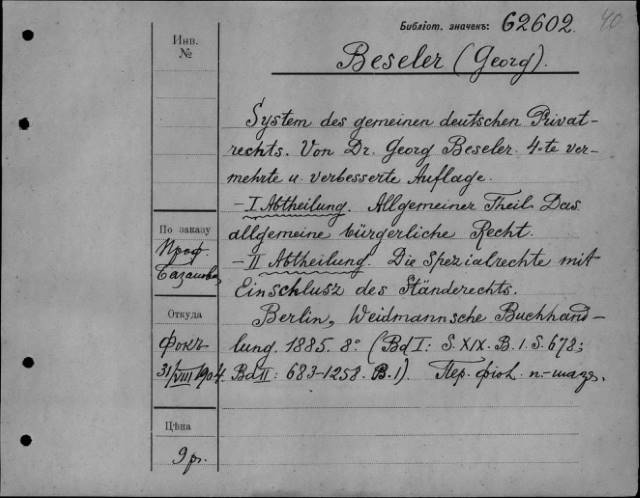 Библіот. значекъ: 62602.
40
Инв.
№
Beseler (Georg).
System des gemeinen deutschen Privat-
rechts. Von Dr. Georg Beseler. 4-te ver-
mehrte u. verbesserte Auflage.
– I Abtheilung. Allgemeiner Theil. Das
allgemeine bürgerliche Recht.
– II Abtheilung. Die Spezialrechte mit
Einschlusz des Ständerechts.
Berlin, Weidmannsche Buchhand-
lung. 1885. 8° (Bd I: S. XIX. B. 1. S. 678;
Bd II: 683-1258. B. 1). Пер.
По заказу
Проф.
Базанова
Откуда
Фокъ
31/VIII 1904.
Цѣна
9 р.